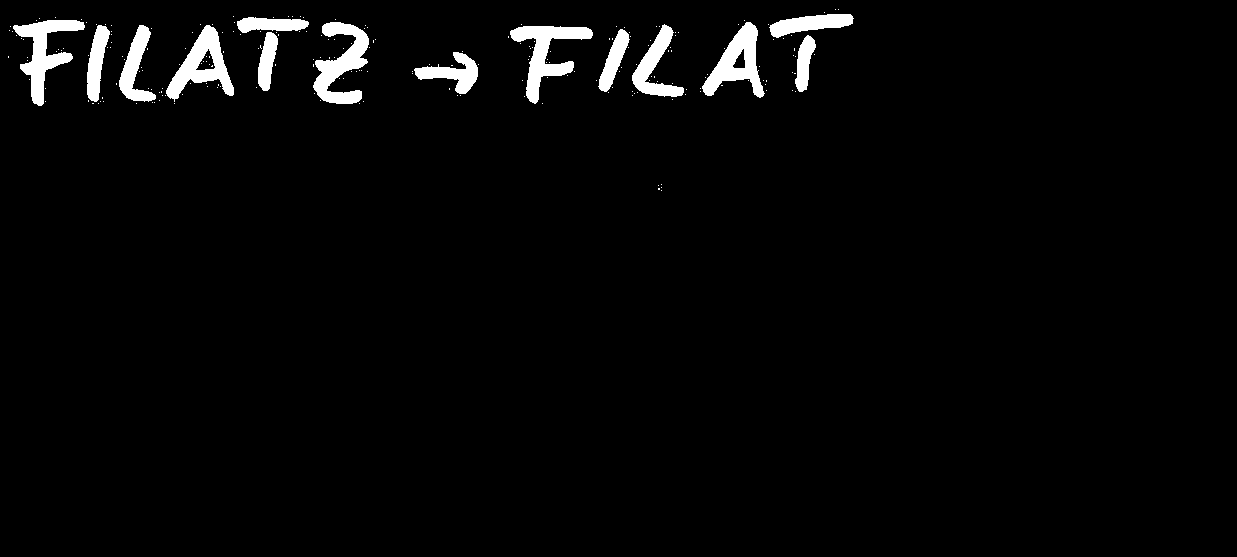 FILATZ → FILAT